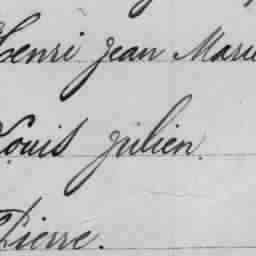 Henri Jean Marie
Louis Julien.
Pierre.